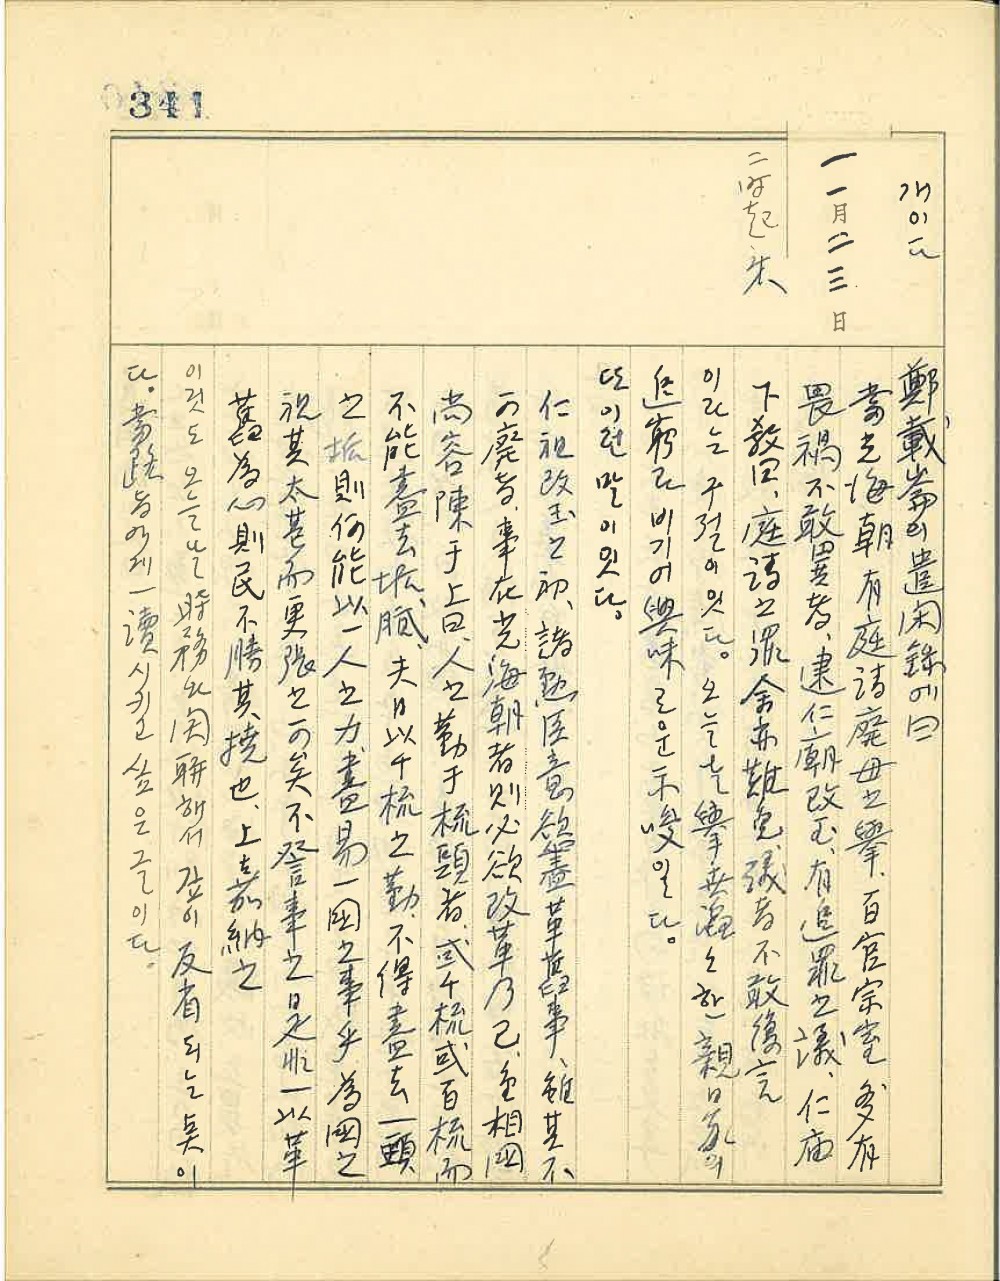 341
개이다
一一月二三日
二時起床
鄭載崙의 遣閑錄에 曰
當光海朝 有庭請廢母之擧、百官宗室 多有
畏禍不敢異者、逮仁朝改玉、有追罪之議、仁庙
下教曰、庭請之罪 余亦難免、議者不敢復言
이라는 구절이 잇다。오늘날 擧世滔々한 親日家의
追窮과 비기여 興味로운 示唆일다。
또 이런 말이 잇다。
仁祖改玉之初、諸勲臣意欲盡革舊事、雖其不
可廢者、事在光海朝者則必欲改革乃已、金相國
尚容 陳于上曰、人之勤于梳頭者、或千梳或百梳而
不能盡去垢膩、夫日以千梳之勤、不得盡去一頭
之垢 則何能以一人之力、盡易一國之事乎、為國之
視其太甚而更張之可矣 不咎事之是非 一以革
舊為心則民不勝其撓也、上嘉納之
이것도 오늘날 時務와 関聯해서 깊이 反省되는 点이
다。當路者에게 一讀시키고 싶은 글이다。